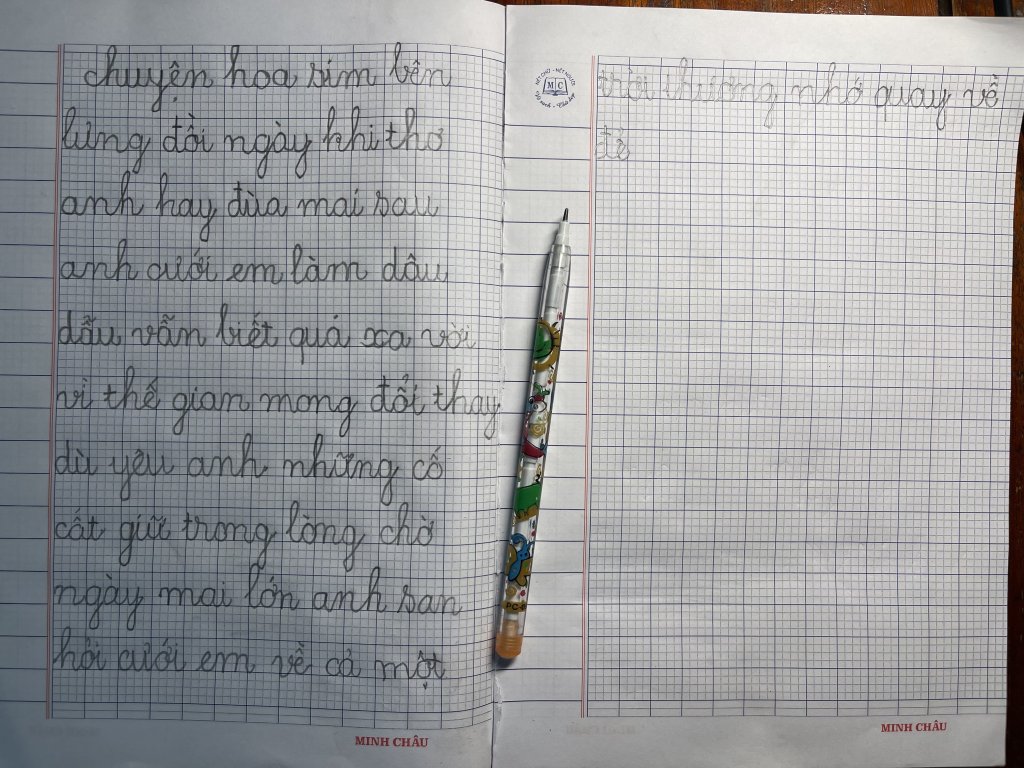 chuyện hoa sim bên
lưng đồi ngày khi thơ
anh hay đùa mai sau
anh cưới em làm dâu
dẫu vẫn biết quá xa vời
vì thế gian mong đổi thay
dù yêu anh nhưng cố
cất giữ trong lòng chờ
ngày mai lớn anh san
hỏi cưới em về cả một
MINH CHÂU
NÉT CHỮ - NẾT NGƯỜI
MC
trời thương nhớ quay về
để
MINH CHÂU
PC-